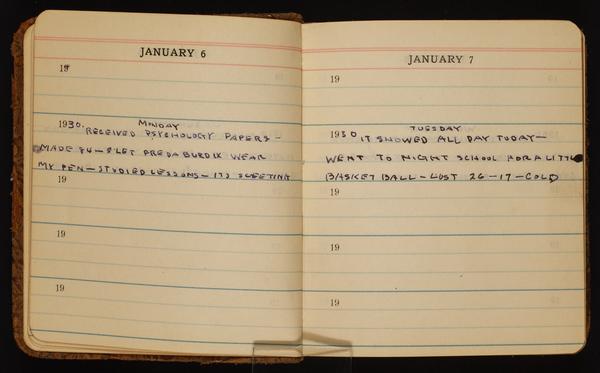 JANUARY 6
19
1930. MONDAY
RECEIVED PSYCHOLOGY PAPERS
MADE 84 - & LET FREDA BURDIK WEAR
MY PEN - STUDIED LESSONS - ITS SLEETING
19
19
19
JANUARY 7
19
1930 TUESDAY
IT SNOWED ALL DAY TODAY -
WENT TO NIGHT SCHOOL FOR A LITTLE
BASKET BALL - LOST 26 - 17 - COLD
19
19
19